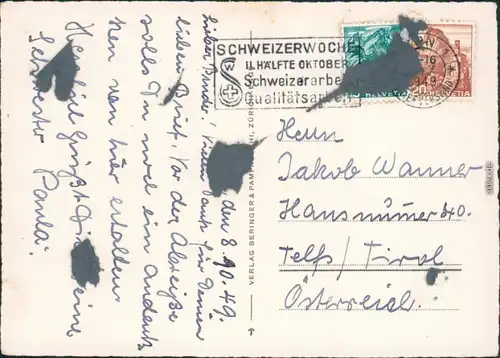 SCHWEIZERWOCHE
II. HÄLFTE OKTOBER
Schweizerarbe
Qualitätsarbeit
HELVETIA
20 HELVETIA
den 8.10.49.
Lieber Bruder! Vielen Dank für Deinen
lieben Brief. Vor der Abreise
sollst Du noch ein Andenk
ken von hier erhalten
Herzlich grüßt Dich Deine
Schwester Paula.
VERLAG BERINGER & PAMP
ZÜRICH
Herrn
Jakob Wanner
Hausnummer 40.
Telfs / Tirol
Österreich.